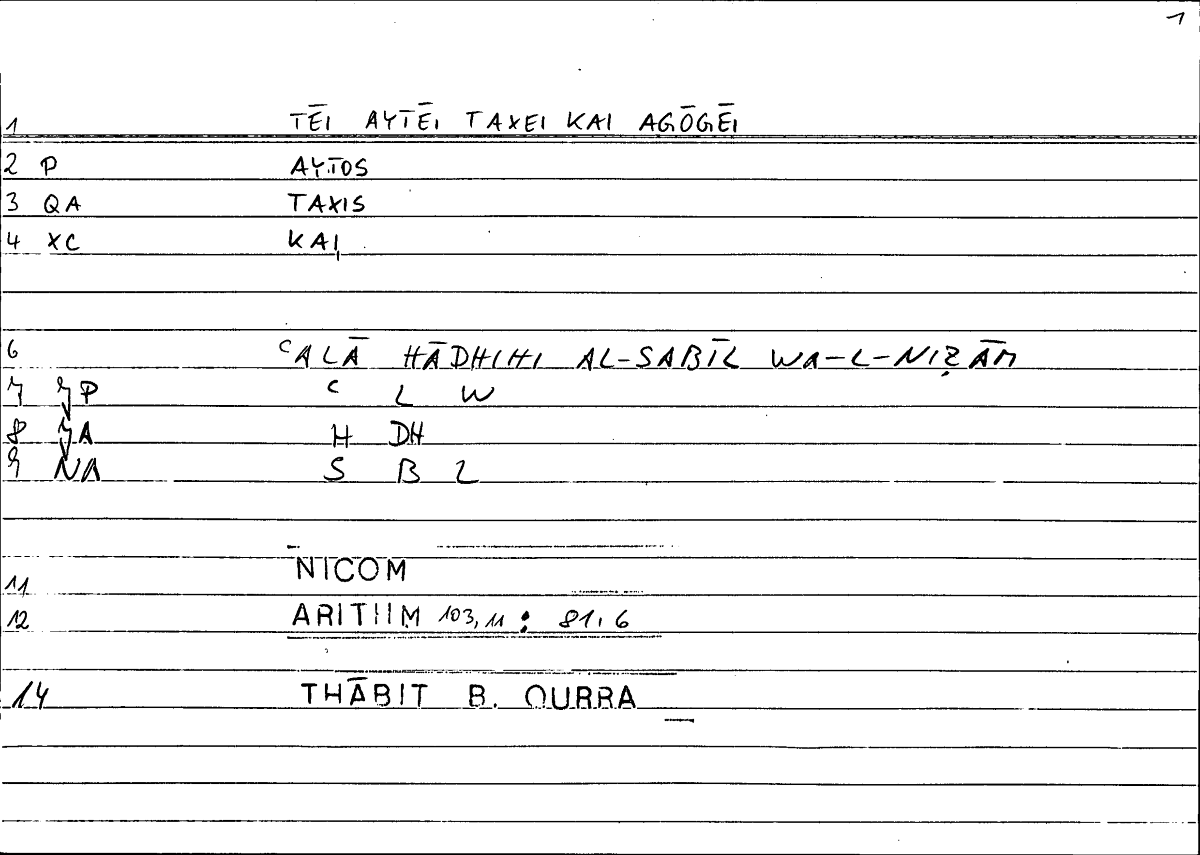 1
1 TĒI AYTĒI TAXEI KAI AGŌGĒI
2 P AYTOS
3 QA TAXIS
4 XC KAI
6 ᶜALĀ HĀDHIHI AL-SABĪL WA-L-NIẒĀM
7 P ᶜ L W
8 A H DH
9 NA S B L
11 NICOM
12 ARITHM 103,11 : 81,6
14 THĀBIT B. QURRA